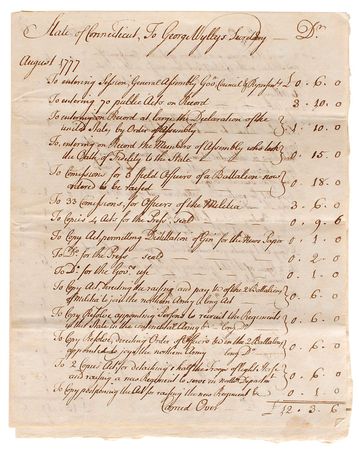 State of Connecticut, To George Wyllys Secretary Dr.
August 1777
To entering Session, General Assembly, Gov. Council & Represent. £ 0 . 6 . 0
To entering 70 public Acts on Record 3 . 10 . 0
To entering on Record at large the Declaration of the
united States, by Order of Assembly 1 . 10 . 0
To entering on Record the Members of Assembly who took
the Oath of Fidelity to the State 0 . 15 . 0
To Comissions for 3 field Officers of a Battalion now
ordered to be raised 0 . 18 . 0
To 33 Comissions, for Officers of the Militia 3 . 6 . 0
To Copies 4 Acts for the Press. seal 0 . 9 . 6
To Copy Act permitting Distillation of Gin for the News Paper 0 . 1 . 0
To Do. for the Press seal 0 . 2 . 0
To Do. for the Govr. use 0 . 1 . 0
To Copy Act directing the raising and pay &c of the 2 Battalions
of Militia to join the northern Army 0 . 6 . 0
To Copy Resolve appointing Persons to recruit the Regiments
in this State in the continental Army 0 . 6 . 0
To Copy Resolve, directing Order of Officers &c in the 2 Battalions
appointed to join the northern Army 0 . 6 . 0
To 2 Copies Act for detaching 1 half the Troops of Light Horse
and raising a new Regiment to serve in northn. Department 0 . 6 . 0
To Copy postponing the Act for raising the new Regiment &c 0 . 1 . 0
Carried Over £12 . 3 . 6